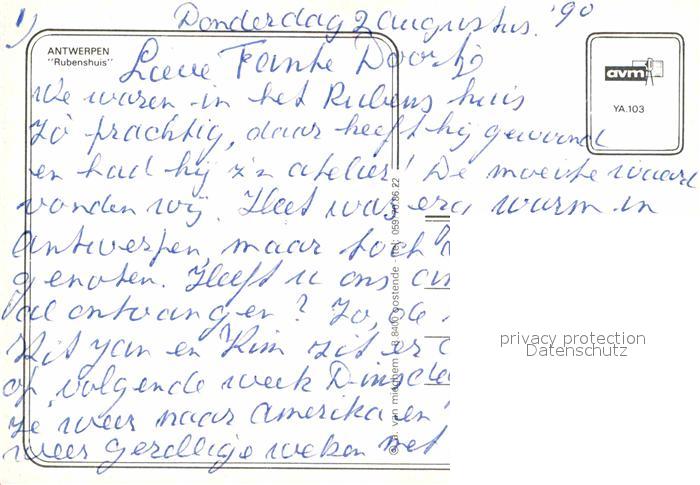 1) Donderdag 2 augustus. '90
ANTWERPEN
"Rubenshuis"
Lieve Tante Doortje
We waren in het Rubens huis
Zo prachtig, daar heeft hij gewoond
en had hij z'n atelier! De moeite waard
vonden wij. Het was erg warm in
Antwerpen, maar toch
genoten. Heeft u ons
al ontvangen? Zo, de
zit Jan en Kim zit er
op, volgende week Dinsdag
ze weer naar Amerika en
weer gezellige weken met
avm
YA.103
v. van mieghem - B 8400 oostende - tel.: 059/70.86.22
privacy protection
Datenschutz